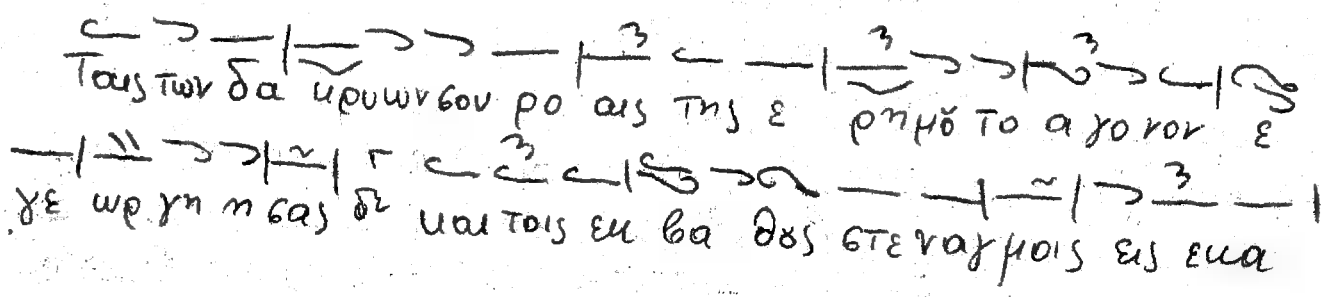 Ταις των δα κρυων σου ρο αις της ε ρημȣ το α γονον ε
γε ωρ γη η σας δι και τοις εκ βα θȣς στε ναγ μοις εις εκα